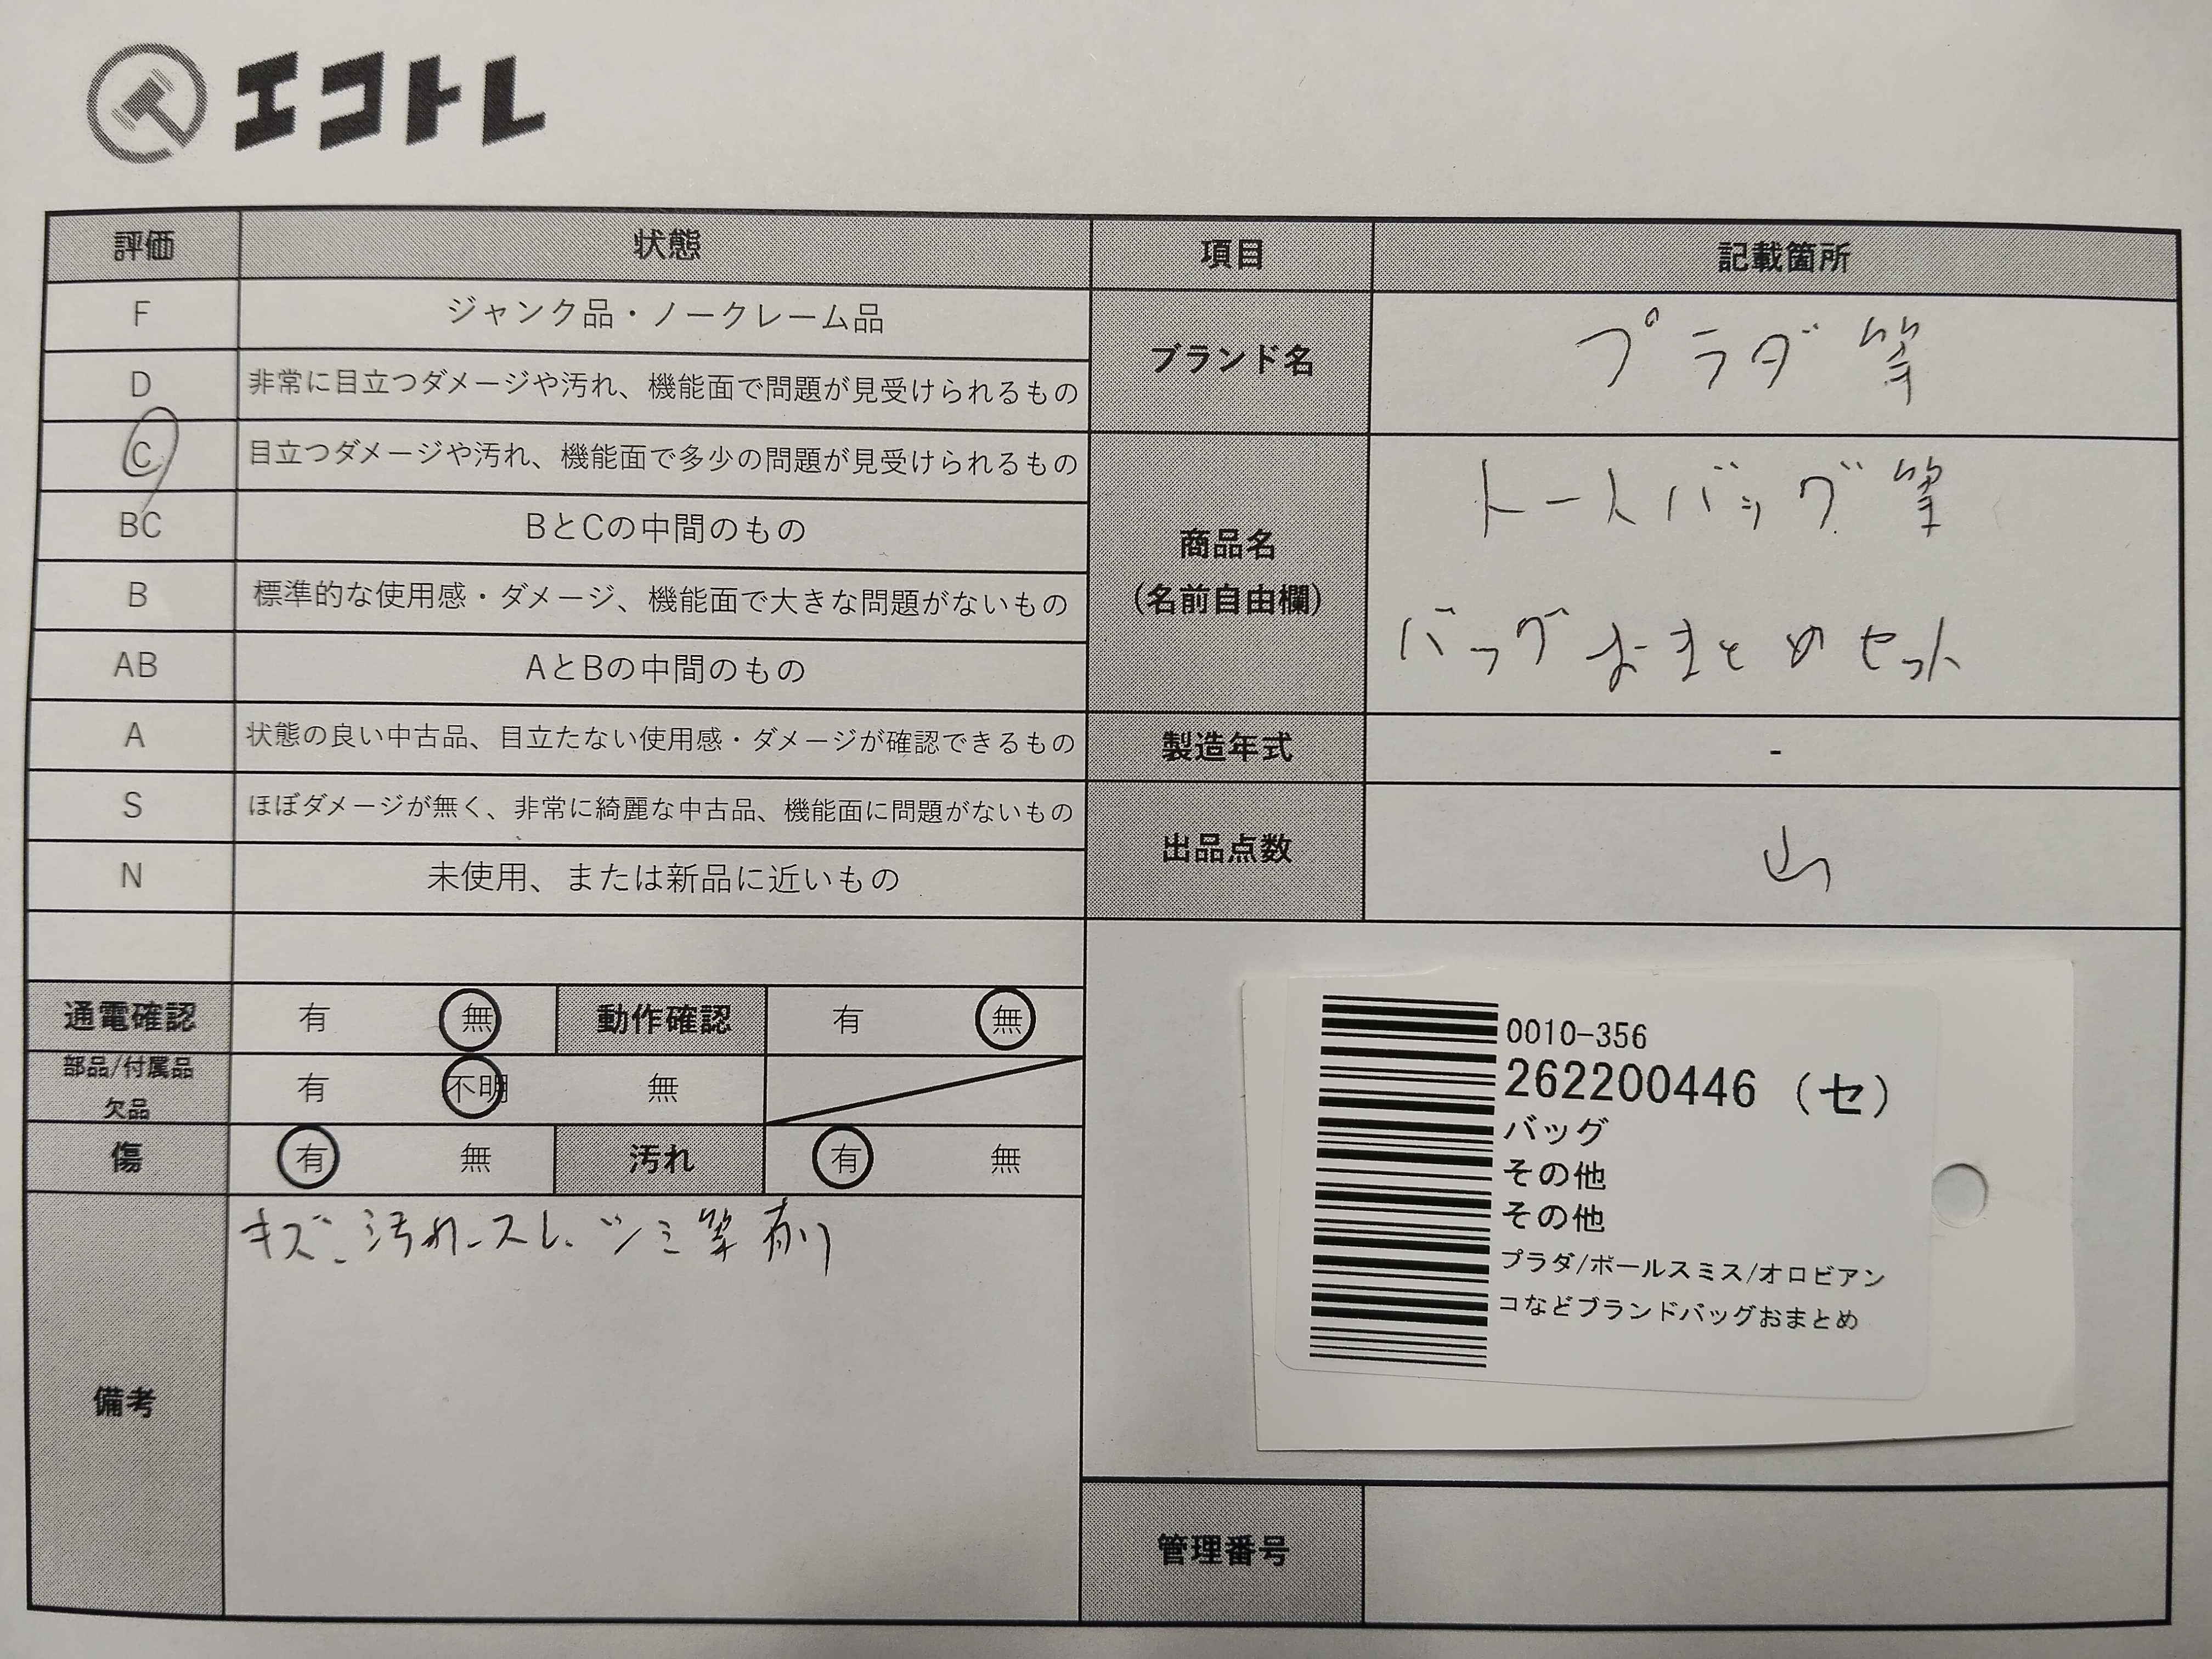 エコトレ
評価 状態 項目 記載箇所
F ジャンク品・ノークレーム品
D 非常に目立つダメージや汚れ、機能面で問題が見受けられるもの
ブランド名 プラダ等
C 目立つダメージや汚れ、機能面で多少の問題が見受けられるもの
BC BとCの中間のもの
B 標準的な使用感・ダメージ、機能面で大きな問題がないもの
AB AとBの中間のもの
商品名
(名前自由欄)
トートバッグ等
バッグおまとめセット
A 状態の良い中古品、目立たない使用感・ダメージが確認できるもの
製造年式 -
S ほぼダメージが無く、非常に綺麗な中古品、機能面に問題がないもの
N 未使用、または新品に近いもの
出品点数 山
通電確認 有 無 動作確認 有 無
部品/付属品
欠品
有 不明 無
傷 有 無 汚れ 有 無
備考
キズ、汚れ、スレ、シミ等有り
0010-356
262200446 (セ)
バッグ
その他
その他
プラダ/ポールスミス/オロビアン
コなどブランドバッグおまとめ
管理番号